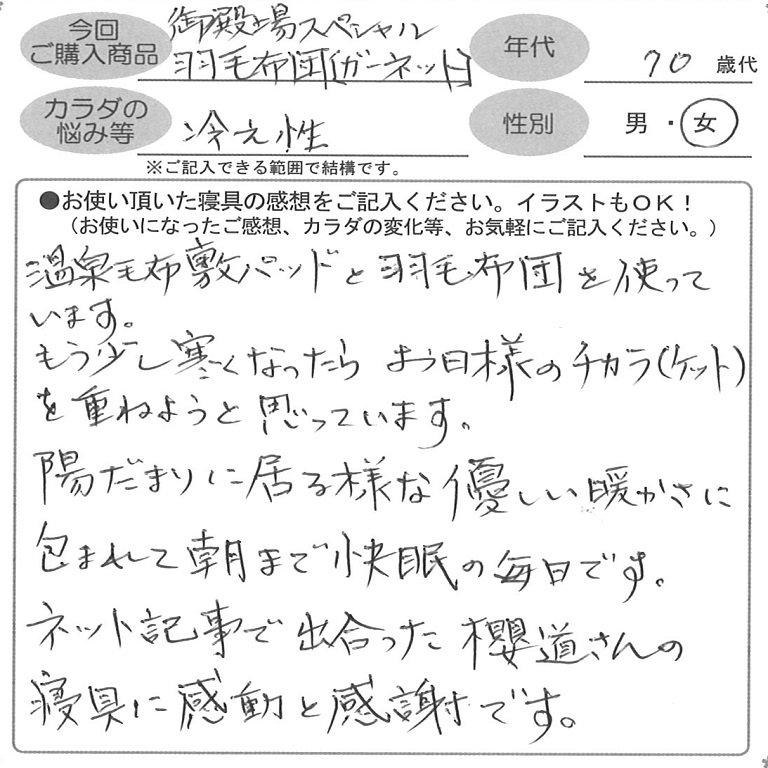 今回
ご購入商品
御殿場スペシャル
羽毛布団(ガーネット)
年代
70 歳代
カラダの
悩み等
冷え性
性別
男・女
※ご記入できる範囲で結構です。
●お使い頂いた寝具の感想をご記入ください。イラストもOK!
(お使いになったご感想、カラダの変化等、お気軽にご記入ください。)
温泉毛布敷パッドと羽毛布団を使って
います。
もう少し寒くなったら お日様のチカラ(ケット)
を重ねようと思っています。
陽だまりに居る様な優しい暖かさに
包まれて朝まで快眠の毎日です。
ネット記事で出合った櫻道さんの
寝具に感動と感謝です。